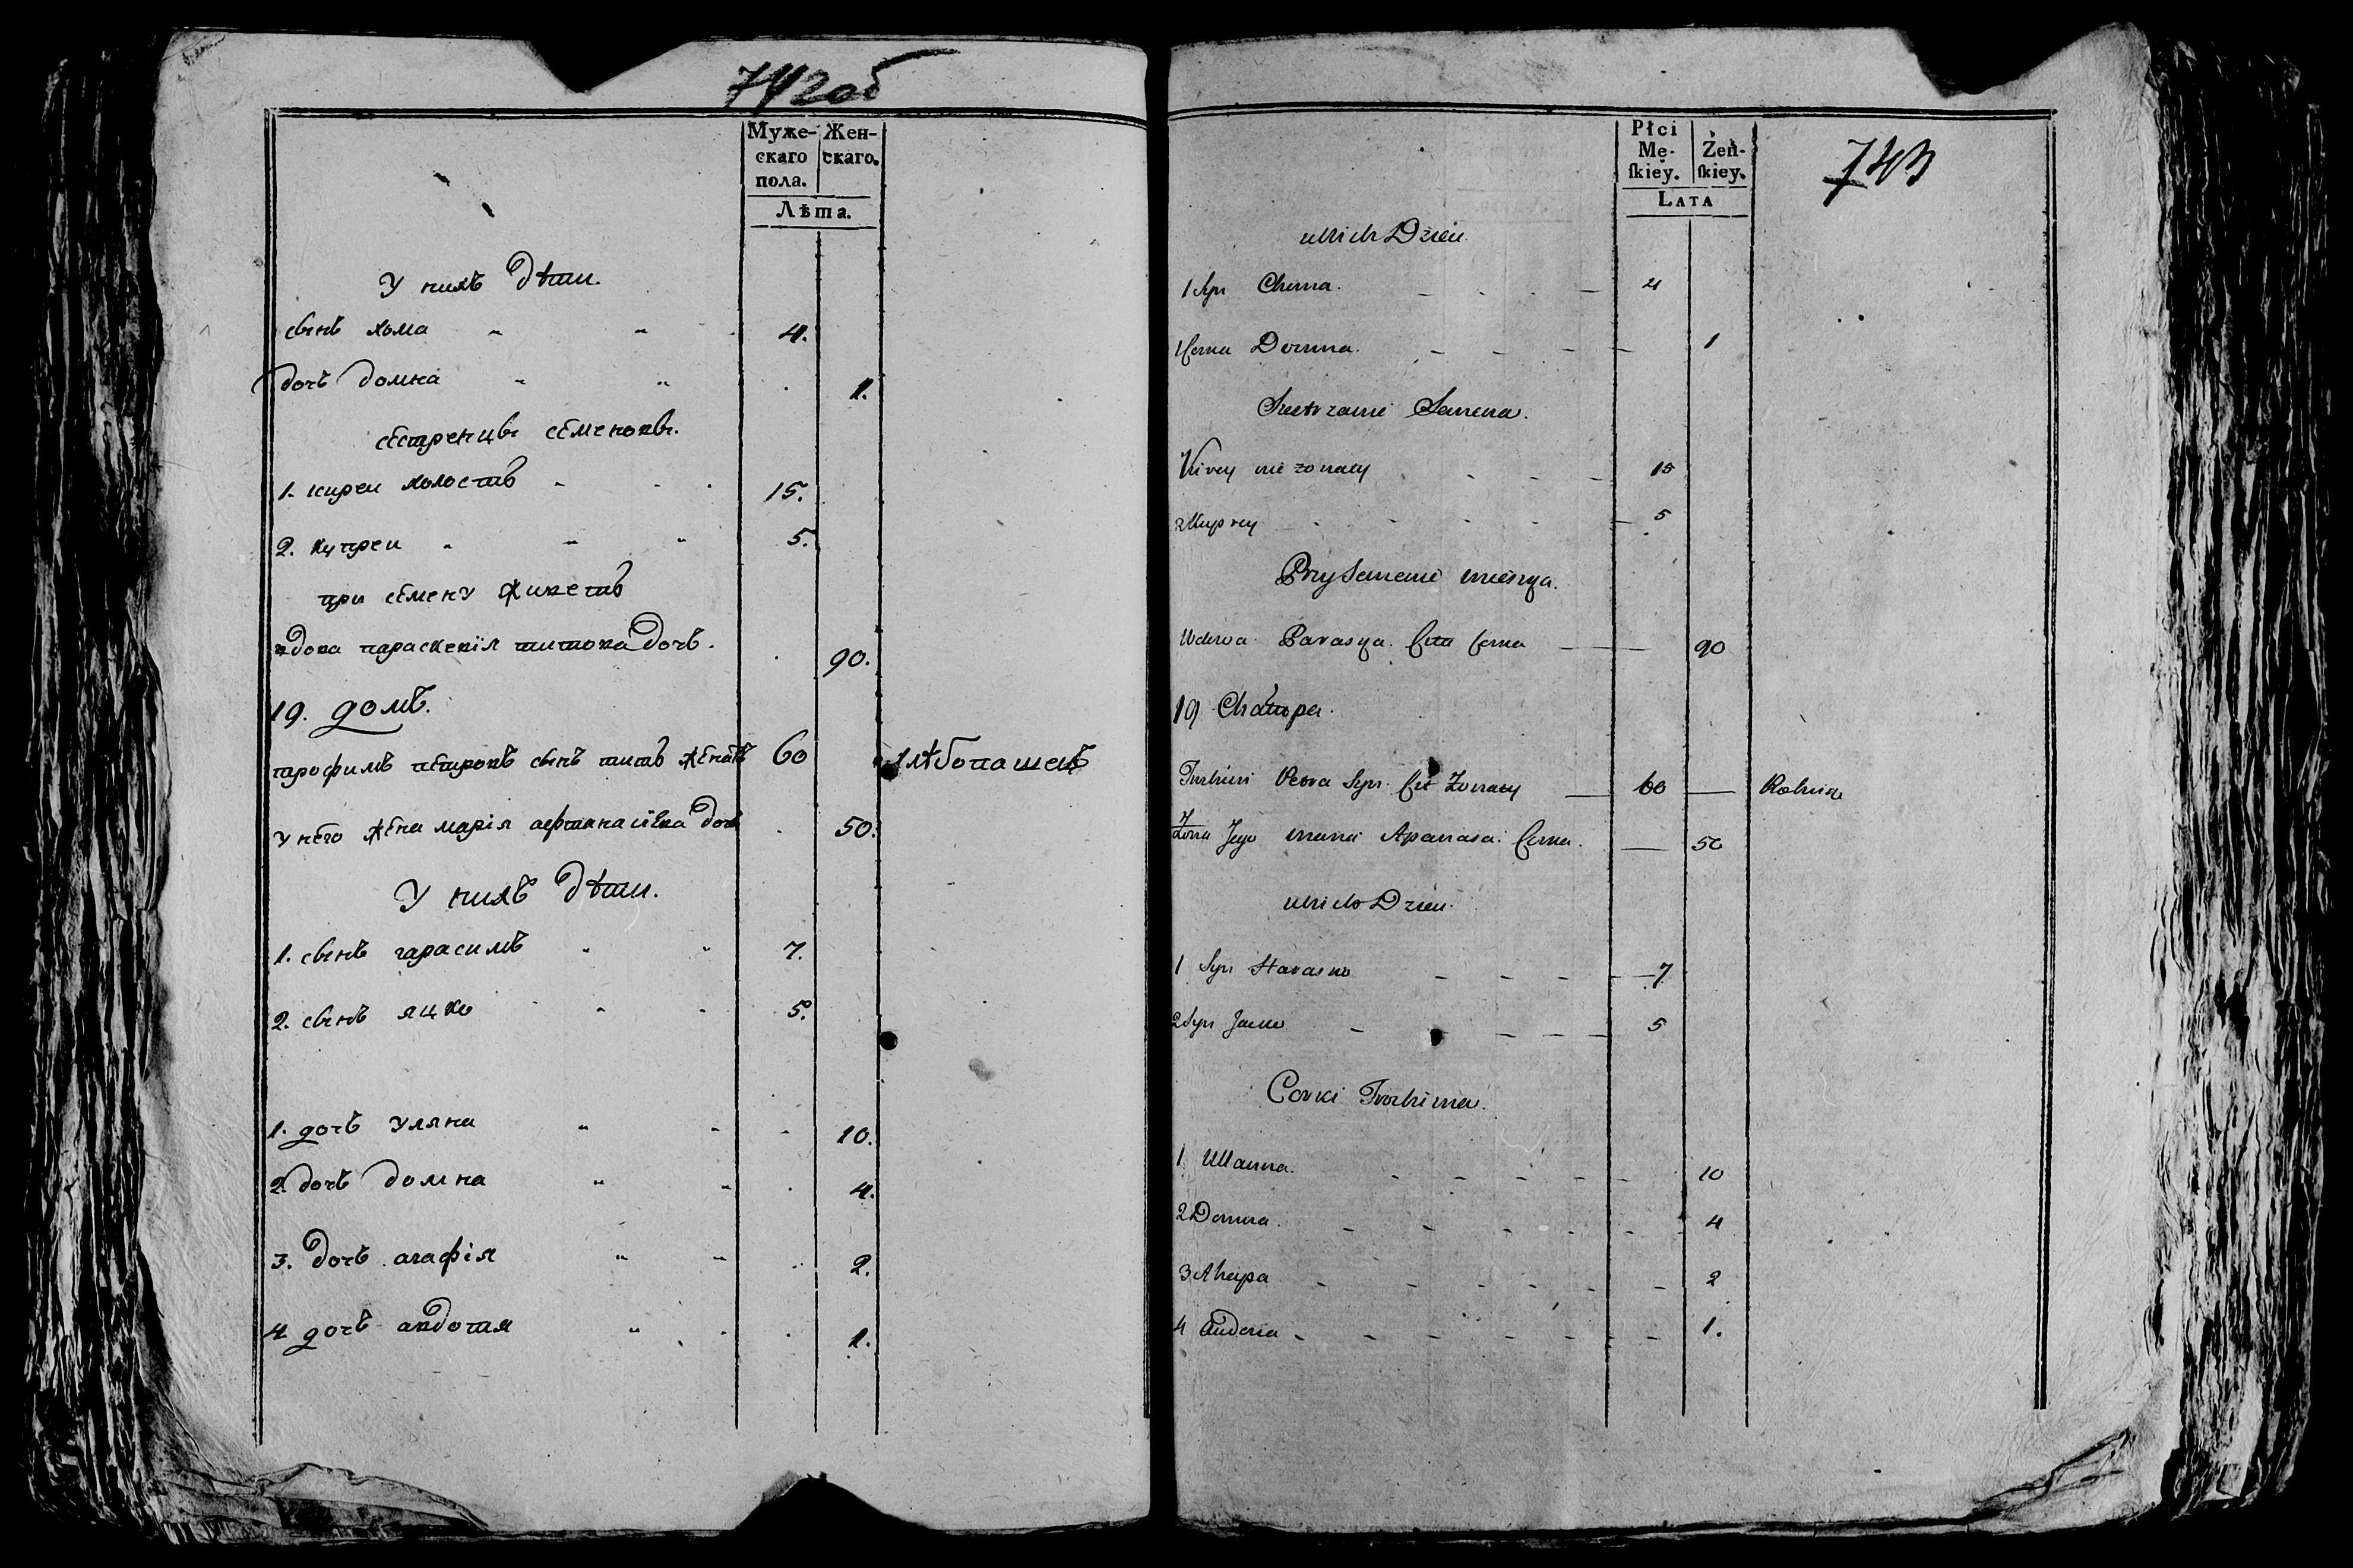 742об
Муже- Жен-
скаго скаго.
пола.
Лѣта.
У нихъ дѣти.
сынъ хома 4.
дочь домна 1.
сестренцы семеновы.
1. кирей холостъ 15.
2. купреи 5.
при семену живетъ
вдова параскевія титова дочь. 90.
19. домъ.
трофимъ петровъ сынъ титъ женатъ 60 хлѣбопашецъ
у него жена марія афтанасіева дочь 50.
У нихъ дѣти.
1. сынъ гарасимъ 7.
2. сынъ яцко 5.
1. дочь уляна 10.
2. дочь домна 4.
3. дочь агафія 2.
4 дочь авдотия 1.
743
Płci Żeń-
Mę- ſkiey.
ſkiey.
LATA
u nich Dzieci
1 Syn Choma 4
1 Corka Domna. 1
Siestrzanie Semena.
Kirey nie zonaty 15
2 Kuprey 5
Przy Semenie mieszka.
Wdowa Paraska Corka 90
19 Chałupa
Trochim Petra Syn Zonaty 60 Rolnik
Zona Jego Apanasa Corka. 50
u nich Dzieci
1 Syn Harasko 7
2 Syn Jacko 5
Corki Trochima.
1 Ulanna 10
2 Domna 4
3 Ahapa 2
4 1.